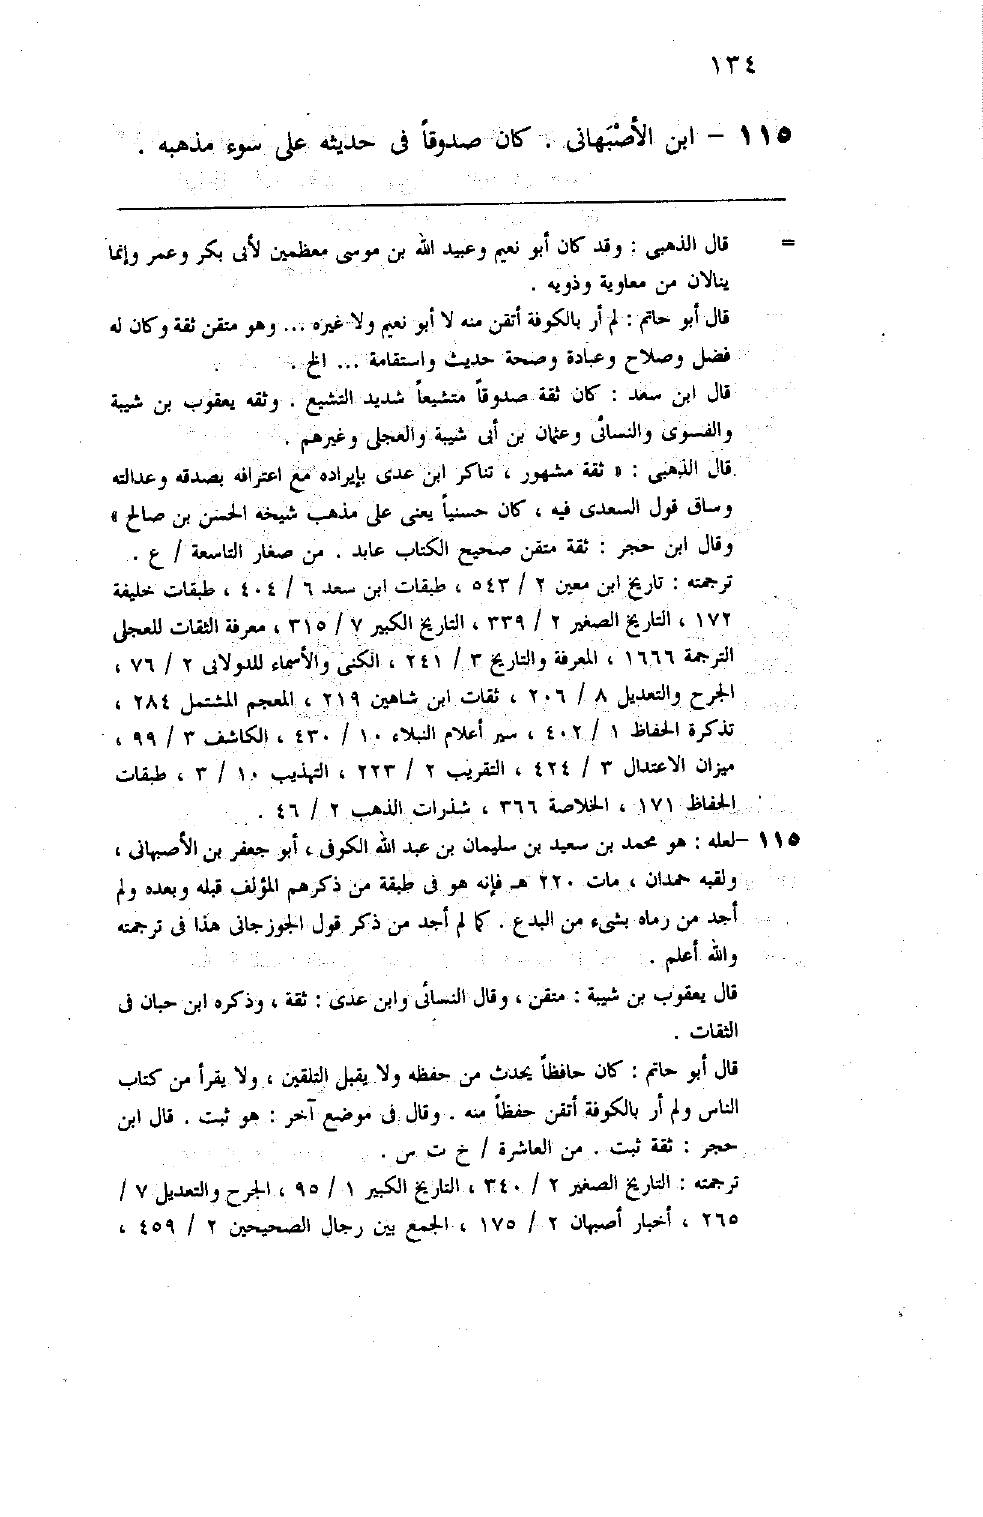 ١٣٤
١١٥ – ابن الأصْبَهانى . كان صدوقاً فى حديثه على سوء مذهبه .
= قال الذهبى : وقد كان أبو نعيم وعبيد الله بن موسى معظمين لأبى بكر وعمر وإنما
ينالان من معاوية وذويه .
قال أبو حاتم : لم أر بالكوفة أتقن منه لا أبو نعيم ولا غيره ... وهو متقن ثقة وكان له
فضل وصلاح وعبادة وصحة حديث واستقامة ... الخ .
قال ابن سعد : كان ثقة صدوقاً متشيعاً شديد التشيع . وثقه يعقوب بن شيبة
والفسوى والنسائى وعثمان بن أبى شيبة والعجلى وغيرهم .
قال الذهبى : « ثقة مشهور ، تناكر ابن عدى بإيراده مع اعترافه بصدقه وعدالته
وساق قول السعدى فيه ، كان حسنياً يعنى على مذهب شيخه الحسن بن صالح »
وقال ابن حجر : ثقة متقن صحيح الكتاب عابد . من صغار التاسعة / ع .
ترجمته : تاريخ ابن معين ٢ / ٥٤٣ ، طبقات ابن سعد ٦ / ٤٠٤ ، طبقات خليفة
١٧٢ ، التاريخ الصغير ٢ / ٣٣٩ ، التاريخ الكبير ٧ / ٣١٥ ، معرفة الثقات للعجلى
الترجمة ١٦٦٦ ، المعرفة والتاريخ ٣ / ٢٤١ ، الكنى والأسماء للدولابى ٢ / ٧٦ ،
الجرح والتعديل ٨ / ٢٠٦ ، ثقات ابن شاهين ٢١٩ ، المعجم المشتمل ٢٨٤ ،
تذكرة الحفاظ ١ / ٤٠٢ ، سير أعلام النبلاء ١٠ / ٤٣٠ ، الكاشف ٣ / ٩٩ ،
ميزان الاعتدال ٣ / ٤٢٤ ، التقريب ٢ / ٢٢٣ ، التهذيب ١٠ / ٣ ، طبقات
الحفاظ ١٧١ ، الخلاصة ٣٦٦ ، شذرات الذهب ٢ / ٤٦ .
١١٥ –لعله : هو محمد بن سعيد بن سليمان بن عبد الله الكوفى ، أبو جعفر بن الأصبهانى ،
ولقبه حمدان ، مات ٢٢٠ هـ فإنه هو فى طبقة من ذكرهم المؤلف قبله وبعده ولم
أجد من رماه بشىء من البدع . كما لم أجد من ذكر قول الجوزجانى هذا فى ترجمته
والله أعلم .
قال يعقوب بن شيبة : متقن ، وقال النسائى وابن عدى : ثقة ، وذكره ابن حبان فى
الثقات .
قال أبو حاتم : كان حافظاً يحدث من حفظه ولا يقبل التلقين ، ولا يقرأ من كتاب
الناس ولم أر بالكوفة أتقن حفظاً منه . وقال فى موضع آخر : هو ثبت . قال ابن
حجر : ثقة ثبت . من العاشرة / خ ت س .
ترجمته : التاريخ الصغير ٢ / ٣٤٠ ، التاريخ الكبير ١ / ٩٥ ، الجرح والتعديل ٧ /
٢٦٥ ، أخبار أصبهان ٢ / ١٧٥ ، الجمع بين رجال الصحيحين ٢ / ٤٥٩ ،